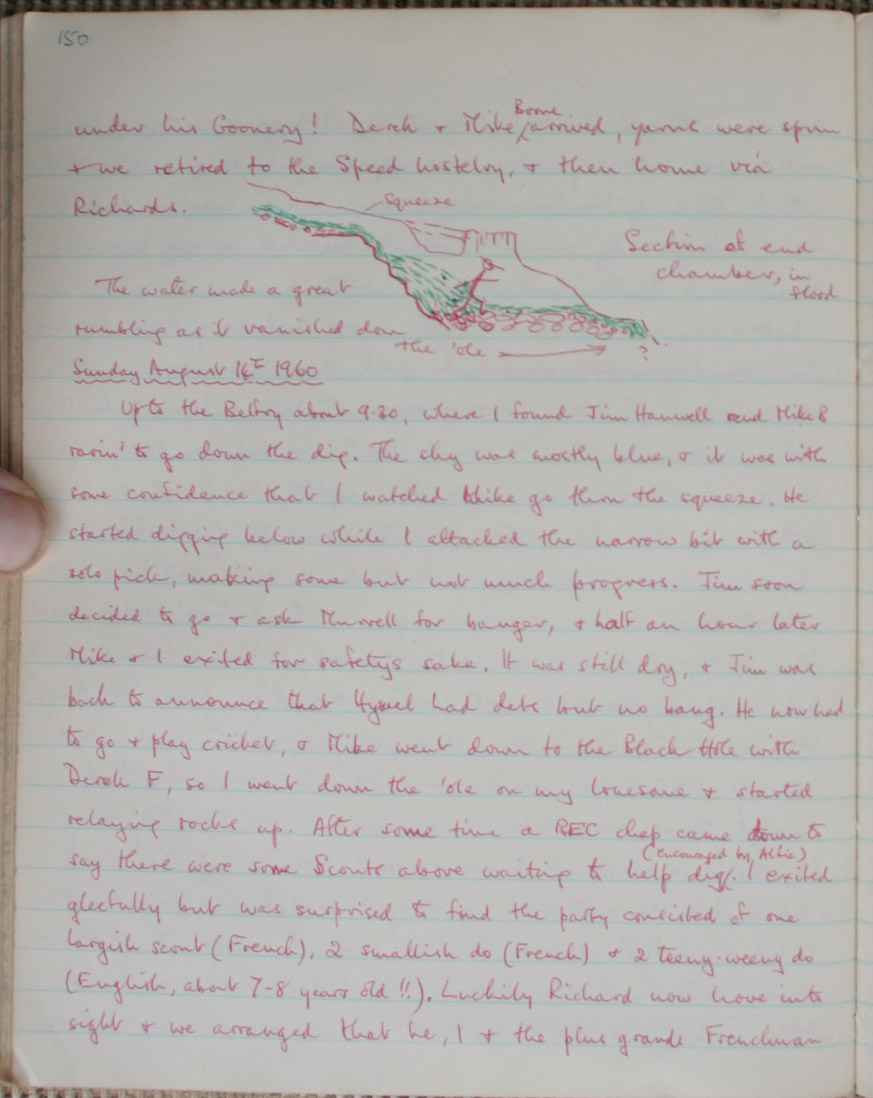 150
under his Goonery! Derek + Mike Boone arrived, yarns were spun
+ we retired to the Speed hostelry, + then home via
Richards.
Squeeze
Section of end
chamber, in
flood
The water made a great
rumbling as it vanished down
the 'ole
?
Sunday August 14th 1960
Up to the Belfry about 9.30, where I found Jim Hanwell and Mike B
rarin' to go down the dig. The sky was mostly blue, + it was with
some confidence that I watched Mike go thru the squeeze. He
started digging below while I attacked the narrow bit with a
solo pick, making some but not much progress. Jim soon
decided to go + ask Murrell for banger, + half an hour later
Mike + I exited for safetys sake. It was still dry, + Jim was
back to announce that had dets but no bang. He now had
to go + play cricket, + Mike went down to the Black Hole with
Derek F, so I went down the 'ole on my lonesome + started
relaying rocks up. After some time a REC chap came down to
say there were some Scouts above waiting to help dig (encouraged by Albie). I exited
gleefully but was surprised to find the party consisted of one
largish scout (French), 2 smallish do (French) + 2 teeny-weeny do
(English, about 7-8 years old !!). Luckily Richard now hove into
sight + we arranged that he, I + the plus grande Frenchman